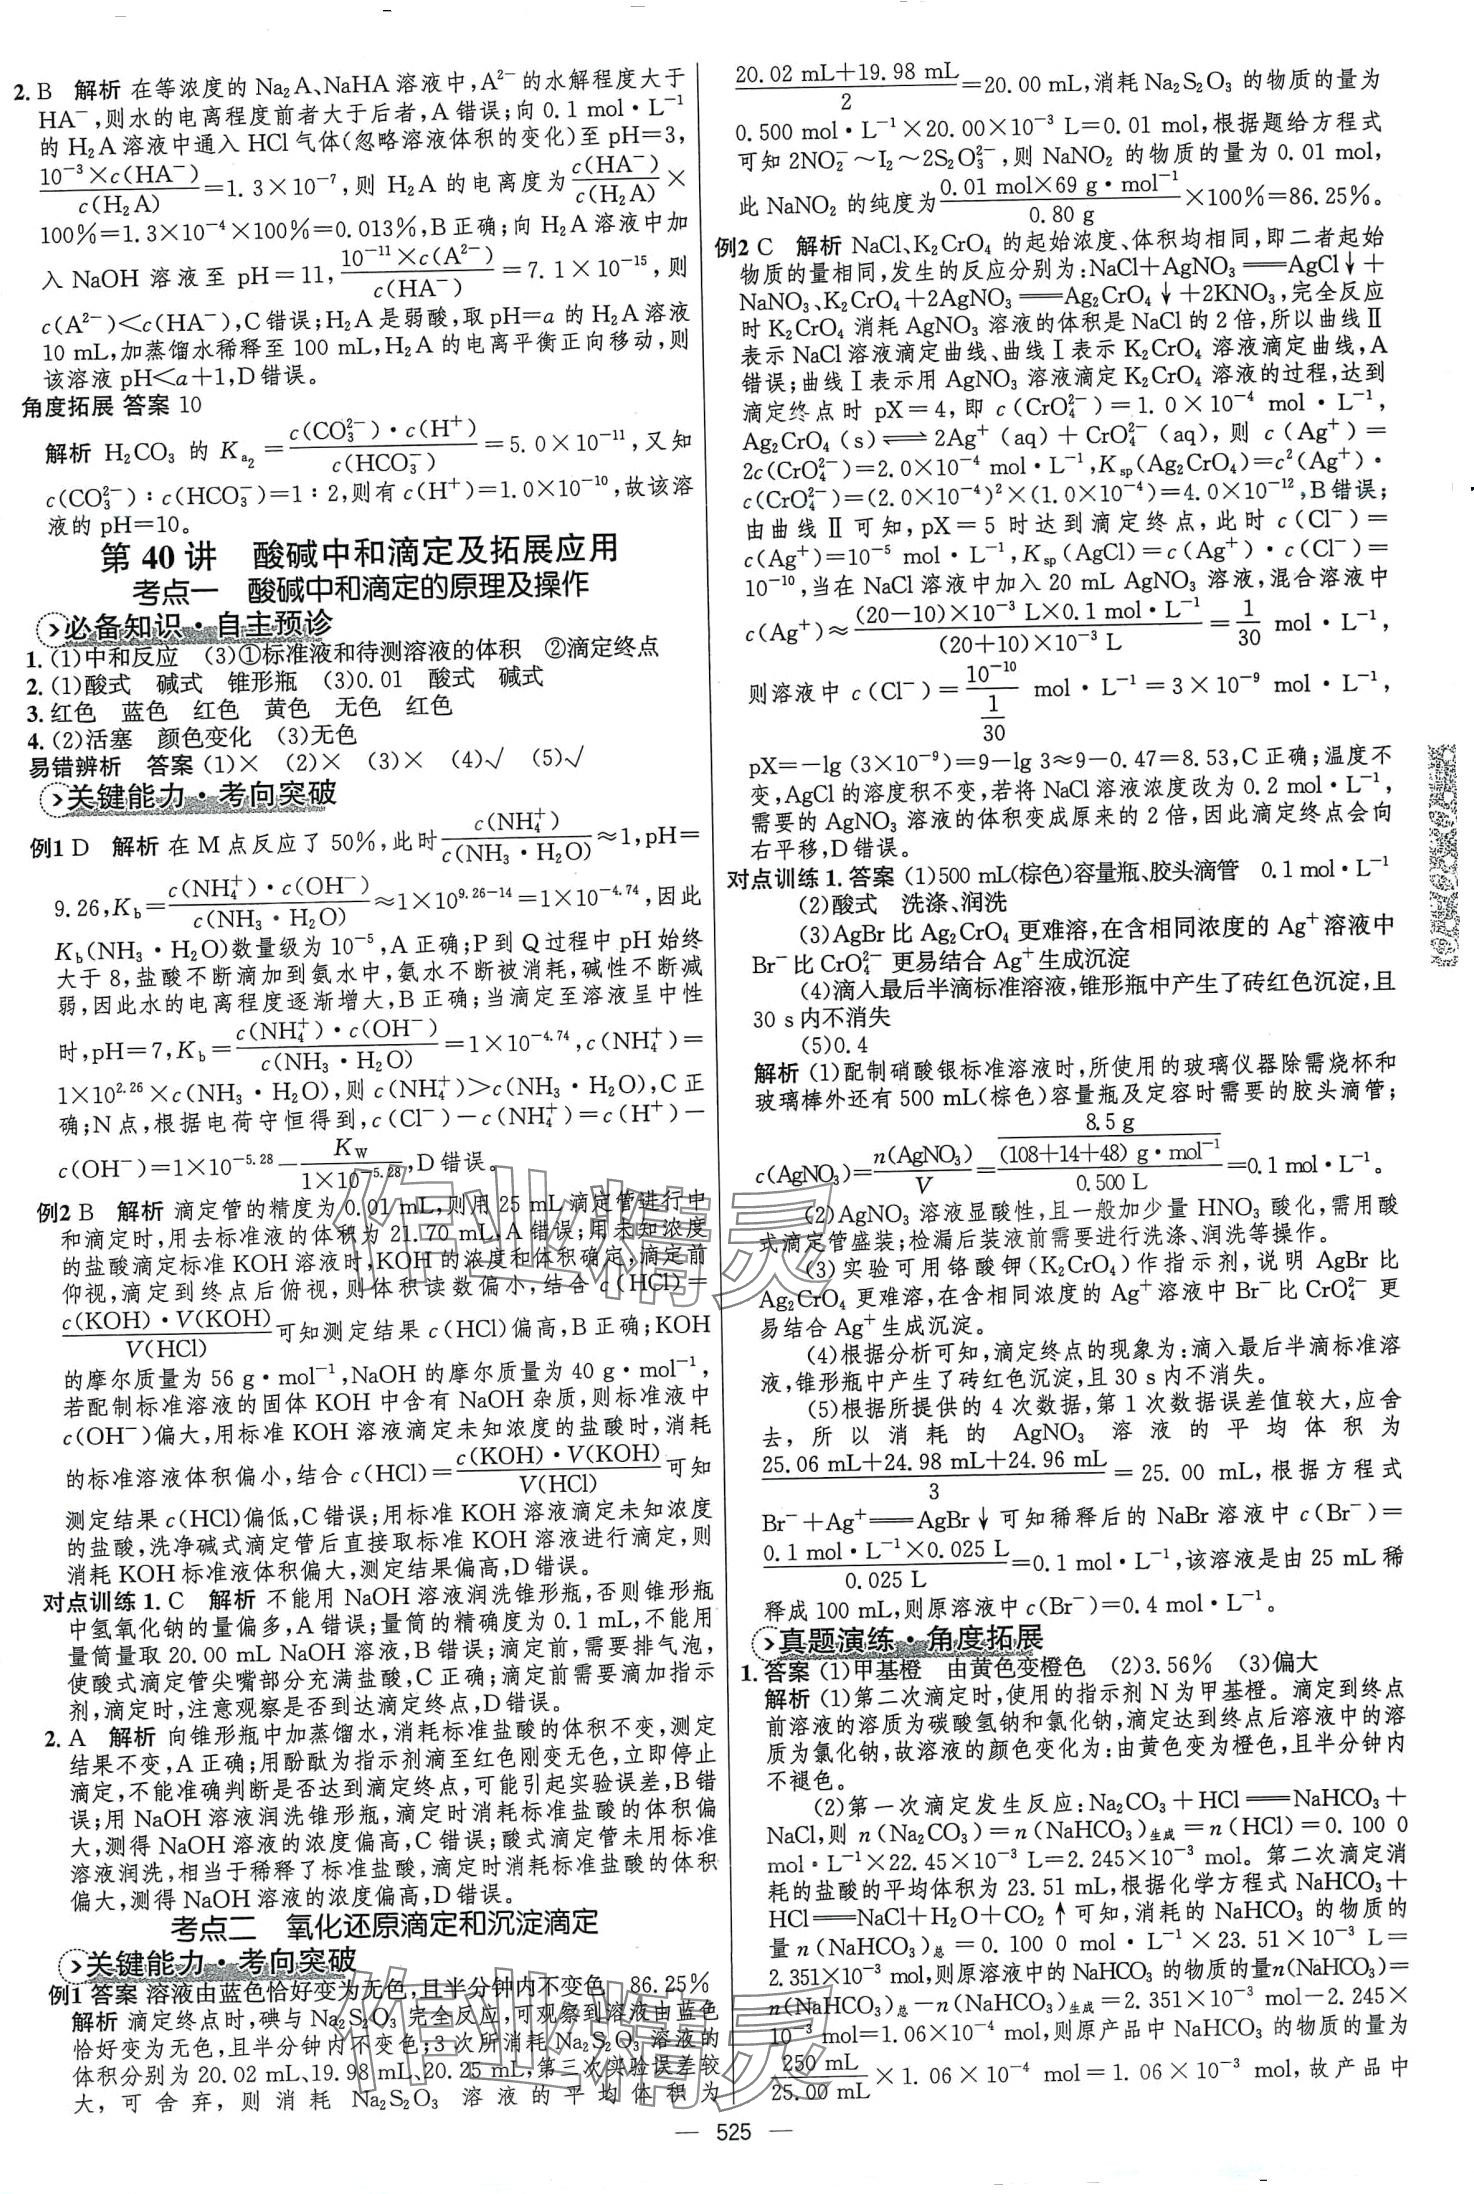 2. B　解析 在等浓度的 Na₂A、NaHA 溶液中,A²⁻的水解程度大于
HA⁻,则水的电离程度前者大于后者,A错误;向 0.1 mol·L⁻¹
的 H₂A 溶液中通入 HCl 气体(忽略溶液体积的变化)至 pH=3,
10⁻³×c(HA⁻)/c(H₂A)=1.3×10⁻⁷,则 H₂A 的电离度为c(HA⁻)/c(H₂A)×
100%=1.3×10⁻⁴×100%=0.013%,B正确;向 H₂A 溶液中加
入 NaOH 溶液至 pH=11,10⁻¹¹×c(A²⁻)/c(HA⁻)=7.1×10⁻¹⁵,则
c(A²⁻)<c(HA⁻),C错误;H₂A是弱酸,取 pH=a 的 H₂A溶液
10 mL,加蒸馏水稀释至 100 mL,H₂A 的电离平衡正向移动,则
该溶液 pH<a+1,D错误。
角度拓展 答案 10
解析 H₂CO₃ 的 Kₐ₂=c(CO₃²⁻)·c(H⁺)/c(HCO₃⁻)=5.0×10⁻¹¹,又知
c(CO₃²⁻)∶c(HCO₃⁻)=1∶2,则有c(H⁺)=1.0×10⁻¹⁰,故该溶
液的 pH=10。
第 40 讲　酸碱中和滴定及拓展应用
考点一　酸碱中和滴定的原理及操作
必备知识·自主预诊
1. (1)中和反应　(3)①标准液和待测溶液的体积　②滴定终点
2. (1)酸式　碱式　锥形瓶　(3)0.01　酸式　碱式
3. 红色　蓝色　红色　黄色　无色　红色
4. (2)活塞　颜色变化　(3)无色
易错辨析　答案 (1)×　(2)×　(3)×　(4)√　(5)√
关键能力·考向突破
例1 D　解析 在 M 点反应了 50%,此时c(NH₄⁺)/c(NH₃·H₂O)≈1,pH=
9.26,K_b=c(NH₄⁺)·c(OH⁻)/c(NH₃·H₂O)≈1×10⁹·²⁶⁻¹⁴=1×10⁻⁴·⁷⁴,因此
K_b(NH₃·H₂O)数量级为 10⁻⁵,A正确;P到Q过程中pH始终
大于8,盐酸不断滴加到氨水中,氨水不断被消耗,碱性不断减
弱,因此水的电离程度逐渐增大,B正确;当滴定至溶液呈中性
时,pH=7,K_b=c(NH₄⁺)·c(OH⁻)/c(NH₃·H₂O)=1×10⁻⁴·⁷⁴,c(NH₄⁺)=
1×10²·²⁶×c(NH₃·H₂O),则 c(NH₄⁺)>c(NH₃·H₂O),C正
确;N点,根据电荷守恒得到,c(Cl⁻)-c(NH₄⁺)=c(H⁺)-
c(OH⁻)=1×10⁻⁵·²⁸-K_W/1×10⁻⁵·²⁸,D错误。
例2 B　解析 滴定管的精度为0.01 mL,则用 25 mL滴定管进行中
和滴定时,用去标准液的体积为 21.70 mL,A错误;用未知浓度
的盐酸滴定标准 KOH 溶液时,KOH的浓度和体积确定,滴定前
仰视,滴定到终点后俯视,则体积读数偏小,结合 c(HCl)=
c(KOH)·V(KOH)/V(HCl)可知测定结果c(HCl)偏高,B正确;KOH
的摩尔质量为 56 g·mol⁻¹,NaOH的摩尔质量为 40 g·mol⁻¹,
若配制标准溶液的固体 KOH 中含有 NaOH 杂质,则标准液中
c(OH⁻)偏大,用标准 KOH 溶液滴定未知浓度的盐酸时,消耗
的标准溶液体积偏小,结合c(HCl)=c(KOH)·V(KOH)/V(HCl)可知
测定结果c(HCl)偏低,C错误;用标准 KOH 溶液滴定未知浓度
的盐酸,洗净碱式滴定管后直接取标准 KOH 溶液进行滴定,则
消耗 KOH标准液体积偏大,测定结果偏高,D错误。
对点训练 1. C　解析 不能用 NaOH 溶液润洗锥形瓶,否则锥形瓶
中氢氧化钠的量偏多,A错误;量筒的精确度为 0.1 mL,不能用
量筒量取 20.00 mL NaOH 溶液,B错误;滴定前,需要排气泡,
使酸式滴定管尖嘴部分充满盐酸,C正确;滴定时需要加指示
剂,滴定时,注意观察是否到达滴定终点,D错误。
2. A　解析 向锥形瓶中加蒸馏水,消耗标准盐酸的体积不变,测定
结果不变,A正确;用酚酞为指示剂滴至红色刚变无色,立即停止
滴定,不能准确判断是否达到滴定终点,可能引起实验误差,B错
误;用 NaOH 溶液润洗锥形瓶,滴定时消耗标准盐酸的体积偏
大,测得 NaOH 溶液的浓度偏高,C错误;酸式滴定管未用标准
溶液润洗,相当于稀释了标准盐酸,滴定时消耗标准盐酸的体积
偏大,测得 NaOH 溶液的浓度偏高,D错误。
考点二　氧化还原滴定和沉淀滴定
关键能力·考向突破
例1 答案 溶液由蓝色恰好变为无色,且半分钟内不变色　86.25%
解析 滴定终点时,碘与 Na₂S₂O₃ 完全反应,可观察到溶液由蓝色
恰好变为无色,且半分钟内不变色;3 次所消耗 Na₂S₂O₃ 溶液的
体积分别为 20.02 mL、19.98 mL、20.25 mL,第三次实验误差较
大,可舍弃,则消耗 Na₂S₂O₃ 溶液的平均体积为
20.02 mL+19.98 mL/2=20.00 mL,消耗 Na₂S₂O₃ 的物质的量为
0.500 mol·L⁻¹×20.00×10⁻³ L=0.01 mol,根据题给方程式
可知 2NO₂⁻~I₂~2S₂O₃²⁻,则 NaNO₂ 的物质的量为 0.01 mol,
此 NaNO₂ 的纯度为0.01 mol×69 g·mol⁻¹/0.80 g×100%=86.25%。
例2 C　解析 NaCl、K₂CrO₄ 的起始浓度、体积均相同,即二者起始
物质的量相同,发生的反应分别为:NaCl+AgNO₃══AgCl↓+
NaNO₃、K₂CrO₄+2AgNO₃══Ag₂CrO₄↓+2KNO₃,完全反应
时 K₂CrO₄ 消耗 AgNO₃ 溶液的体积是 NaCl 的 2 倍,所以曲线Ⅱ
表示 NaCl溶液滴定曲线、曲线Ⅰ表示 K₂CrO₄ 溶液滴定曲线,A
错误;曲线Ⅰ表示用 AgNO₃ 溶液滴定 K₂CrO₄ 溶液的过程,达到
滴定终点时 pX=4,即 c(CrO₄²⁻)=1.0×10⁻⁴ mol·L⁻¹,
Ag₂CrO₄(s)⇌2Ag⁺(aq)+CrO₄²⁻(aq),则 c(Ag⁺)=
2c(CrO₄²⁻)=2.0×10⁻⁴ mol·L⁻¹,Ksp(Ag₂CrO₄)=c²(Ag⁺)·
c(CrO₄²⁻)=(2.0×10⁻⁴)²×(1.0×10⁻⁴)=4.0×10⁻¹²,B错误;
由曲线Ⅱ可知,pX=5 时达到滴定终点,此时 c(Cl⁻)=
c(Ag⁺)=10⁻⁵ mol·L⁻¹,Ksp(AgCl)=c(Ag⁺)·c(Cl⁻)=
10⁻¹⁰,当在 NaCl 溶液中加入 20 mL AgNO₃ 溶液,混合溶液中
c(Ag⁺)≈(20-10)×10⁻³ L×0.1 mol·L⁻¹/(20+10)×10⁻³ L=1/30 mol·L⁻¹,
则溶液中 c(Cl⁻)=10⁻¹⁰/(1/30) mol·L⁻¹=3×10⁻⁹ mol·L⁻¹,
pX=-lg(3×10⁻⁹)=9-lg 3≈9-0.47=8.53,C正确;温度不
变,AgCl的溶度积不变,若将 NaCl 溶液浓度改为 0.2 mol·L⁻¹,
需要的 AgNO₃ 溶液的体积变成原来的 2 倍,因此滴定终点会向
右平移,D错误。
对点训练 1. 答案 (1)500 mL(棕色)容量瓶、胶头滴管　0.1 mol·L⁻¹
(2)酸式　洗涤、润洗
(3)AgBr 比 Ag₂CrO₄ 更难溶,在含相同浓度的 Ag⁺溶液中
Br⁻比 CrO₄²⁻ 更易结合 Ag⁺生成沉淀
(4)滴入最后半滴标准溶液,锥形瓶中产生了砖红色沉淀,且
30 s内不消失
(5)0.4
解析 (1)配制硝酸银标准溶液时,所使用的玻璃仪器除需烧杯和
玻璃棒外还有 500 mL(棕色)容量瓶及定容时需要的胶头滴管;
c(AgNO₃)=n(AgNO₃)/V=(8.5 g/(108+14+48) g·mol⁻¹)/0.500 L=0.1 mol·L⁻¹。
(2)AgNO₃ 溶液显酸性,且一般加少量 HNO₃ 酸化,需用酸
式滴定管盛装;检漏后装液前需要进行洗涤、润洗等操作。
(3)实验可用铬酸钾(K₂CrO₄)作指示剂,说明 AgBr 比
Ag₂CrO₄ 更难溶,在含相同浓度的 Ag⁺溶液中 Br⁻比 CrO₄²⁻ 更
易结合 Ag⁺生成沉淀。
(4)根据分析可知,滴定终点的现象为:滴入最后半滴标准溶
液,锥形瓶中产生了砖红色沉淀,且 30 s内不消失。
(5)根据所提供的 4 次数据,第 1 次数据误差值较大,应舍
去,所以消耗的 AgNO₃ 溶液的平均体积为
25.06 mL+24.98 mL+24.96 mL/3=25.00 mL,根据方程式
Br⁻+Ag⁺══AgBr↓可知稀释后的 NaBr 溶液中 c(Br⁻)=
0.1 mol·L⁻¹×0.025 L/0.025 L=0.1 mol·L⁻¹,该溶液是由 25 mL稀
释成 100 mL,则原溶液中c(Br⁻)=0.4 mol·L⁻¹。
真题演练·角度拓展
1. 答案 (1)甲基橙　由黄色变橙色　(2)3.56%　(3)偏大
解析 (1)第二次滴定时,使用的指示剂 N为甲基橙。滴定到终点
前溶液的溶质为碳酸氢钠和氯化钠,滴定达到终点后溶液中的溶
质为氯化钠,故溶液的颜色变化为:由黄色变为橙色,且半分钟内
不褪色。
(2)第一次滴定发生反应:Na₂CO₃+HCl══NaHCO₃+
NaCl,则 n(Na₂CO₃)=n(NaHCO₃)生成=n(HCl)=0.100 0
mol·L⁻¹×22.45×10⁻³ L=2.245×10⁻³ mol。第二次滴定消
耗的盐酸的平均体积为 23.51 mL,根据化学方程式 NaHCO₃+
HCl══NaCl+H₂O+CO₂↑可知,消耗的 NaHCO₃ 的物质的
量 n(NaHCO₃)总=0.100 0 mol·L⁻¹×23.51×10⁻³ L=
2.351×10⁻³ mol,则原溶液中的 NaHCO₃ 的物质的量n(NaHCO₃)=
n(NaHCO₃)总-n(NaHCO₃)生成=2.351×10⁻³ mol-2.245×
10⁻³ mol=1.06×10⁻⁴ mol,则原产品中 NaHCO₃ 的物质的量为
250 mL/25.00 mL×1.06×10⁻⁴ mol=1.06×10⁻³ mol,故产品中
— 525 —
作业精灵
作业精灵